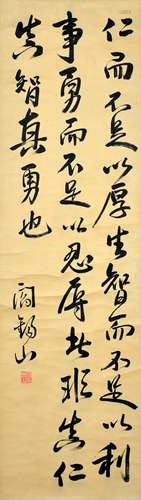 仁而不足以厚生智而不足以利
事勇而不足以忍辱者非真仁
真智真勇也
阎锡山